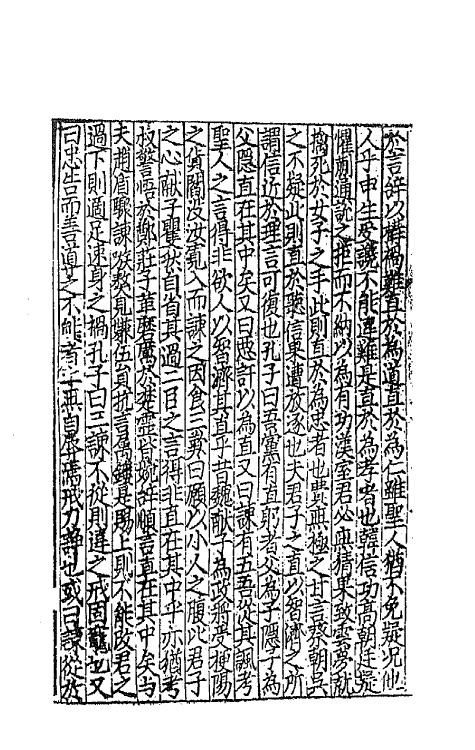 於言訐以權禍雖直於為道直於為仁雖聖人猶不免疑況他
人乎申生受讒不能違難是直於為孝者也韓信功高朝廷疑
懼蒯通說之拒而不納以為有功漢室君必無猜果致雲夢就
擒死於女子之手此則直於為忠者也費無極之甘言發朝吳
之不疑此則直於聽信果遭放逐也夫君子之直以智濟之所
謂信近於理言可復也孔子曰吾黨有直躬者父為子隱子為
父隱直在其中矣又曰惡訐以為直又曰諫有五吾從其諷考
聖人之言得非欲人以智濟其直乎昔魏獻子為政將受梗陽
之貨閻沒汝寬入而諫之因食三歎曰願以小人之腹比君子
之心獻子瞿然自省其過二日之言得非直在其中乎亦猶考
叔警悟於鄭莊子革磨厲於楚靈皆婉辭順言直在其中矣与
夫趙盾驟諫攻發見賺伍員抗言屬鏤是賜上則不能改君之
過下則適足速身之禍孔子曰三諫不從則違之戒固寵也又
曰忠告而善道之不能則止無自辱焉戒力諍也或曰諫從於